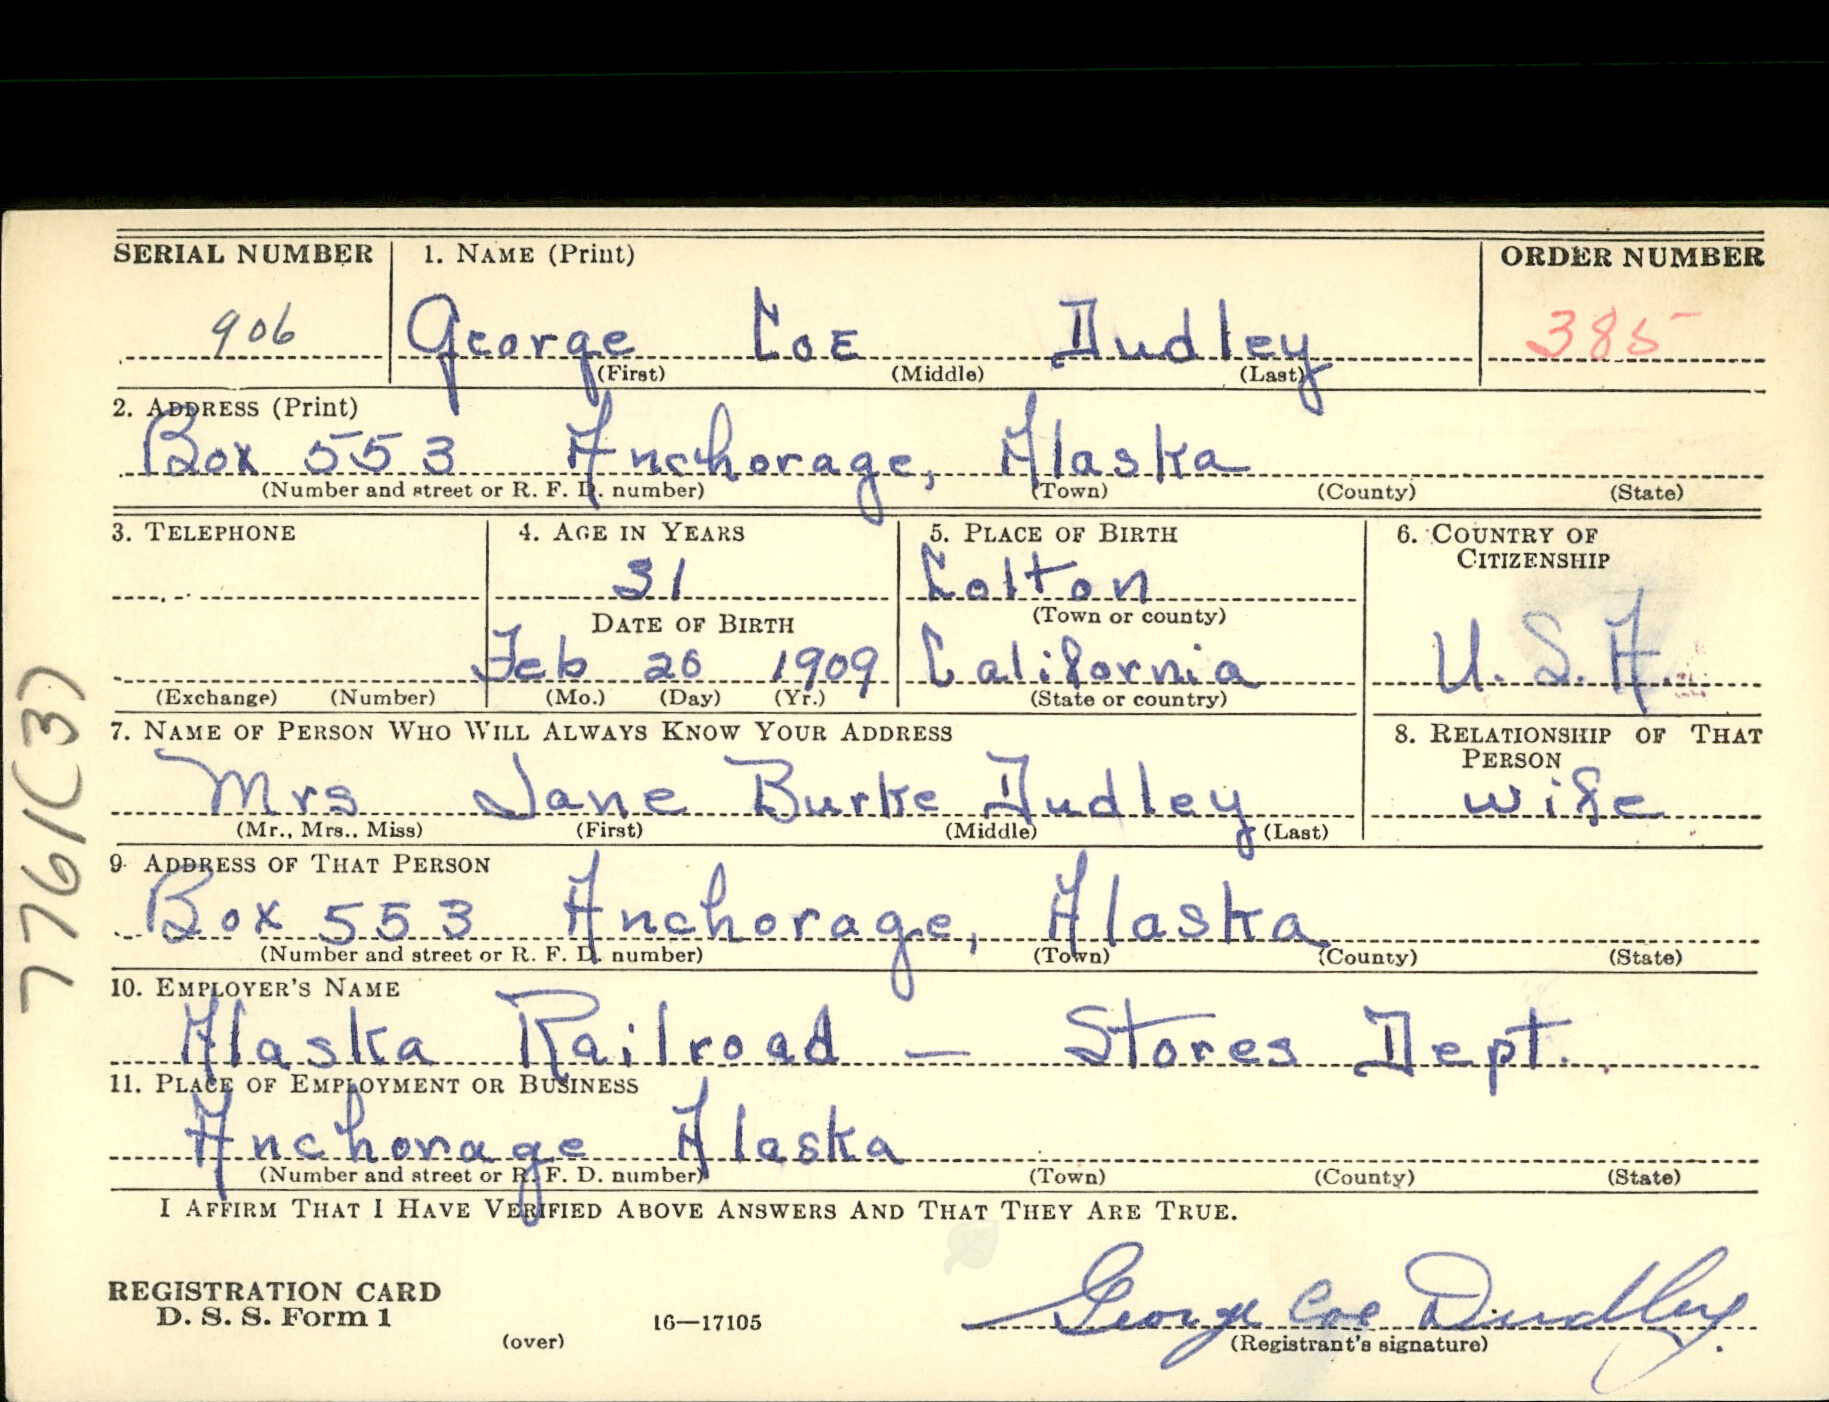 SERIAL NUMBER 1. NAME (Print) ORDER NUMBER
906 George Coe Dudley 385
(First) (Middle) (Last)
2. ADDRESS (Print)
Box 553 Anchorage, Alaska
(Number and street or R. F. D. number) (Town) (County) (State)
3. TELEPHONE 4. AGE IN YEARS 5. PLACE OF BIRTH 6. COUNTRY OF CITIZENSHIP
31 Colton
DATE OF BIRTH (Town or county)
Feb 26 1909 California U. S. A.
(Exchange) (Number) (Mo.) (Day) (Yr.) (State or country)
7. NAME OF PERSON WHO WILL ALWAYS KNOW YOUR ADDRESS 8. RELATIONSHIP OF THAT PERSON
Mrs Jane Burke Dudley wife
(Mr., Mrs., Miss) (First) (Middle) (Last)
9. ADDRESS OF THAT PERSON
Box 553 Anchorage, Alaska
(Number and street or R. F. D. number) (Town) (County) (State)
10. EMPLOYER'S NAME
Alaska Railroad — Stores Dept.
11. PLACE OF EMPLOYMENT OR BUSINESS
Anchorage Alaska
(Number and street or R. F. D. number) (Town) (County) (State)
I AFFIRM THAT I HAVE VERIFIED ABOVE ANSWERS AND THAT THEY ARE TRUE.
George Coe Dudley
REGISTRATION CARD
D. S. S. Form 1 16—17105
(over) (Registrant's signature)
7761(3)